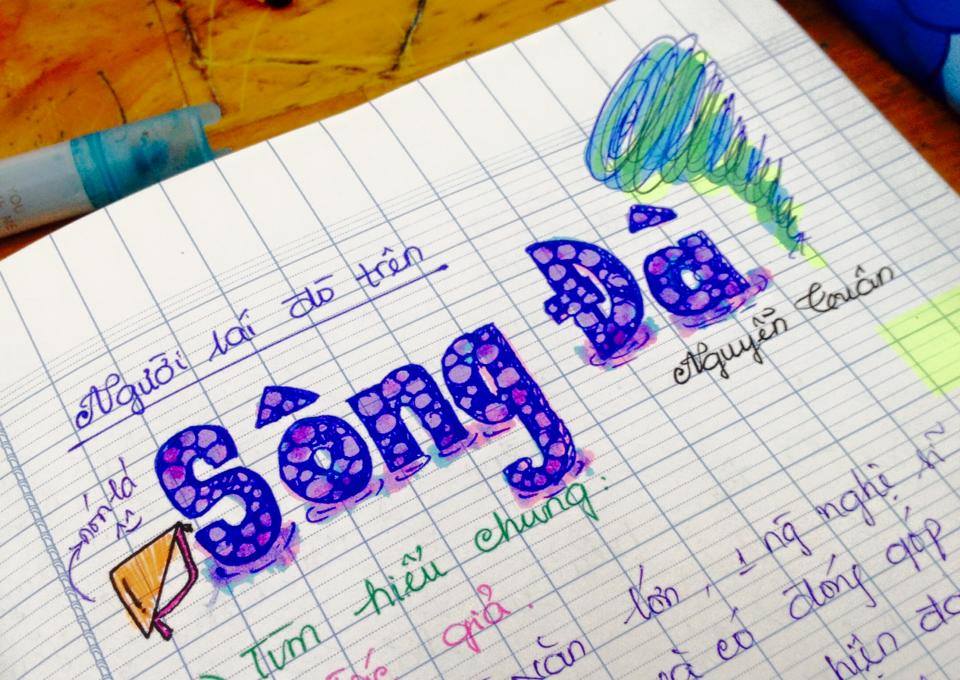 Người lái đò trên
Sông Đà
Nguyễn Tuân
nón lá
Tìm hiểu chung:
Tác giả.
văn lớn, 1 ng nghệ sĩ
và có đóng góp
hiện đạ